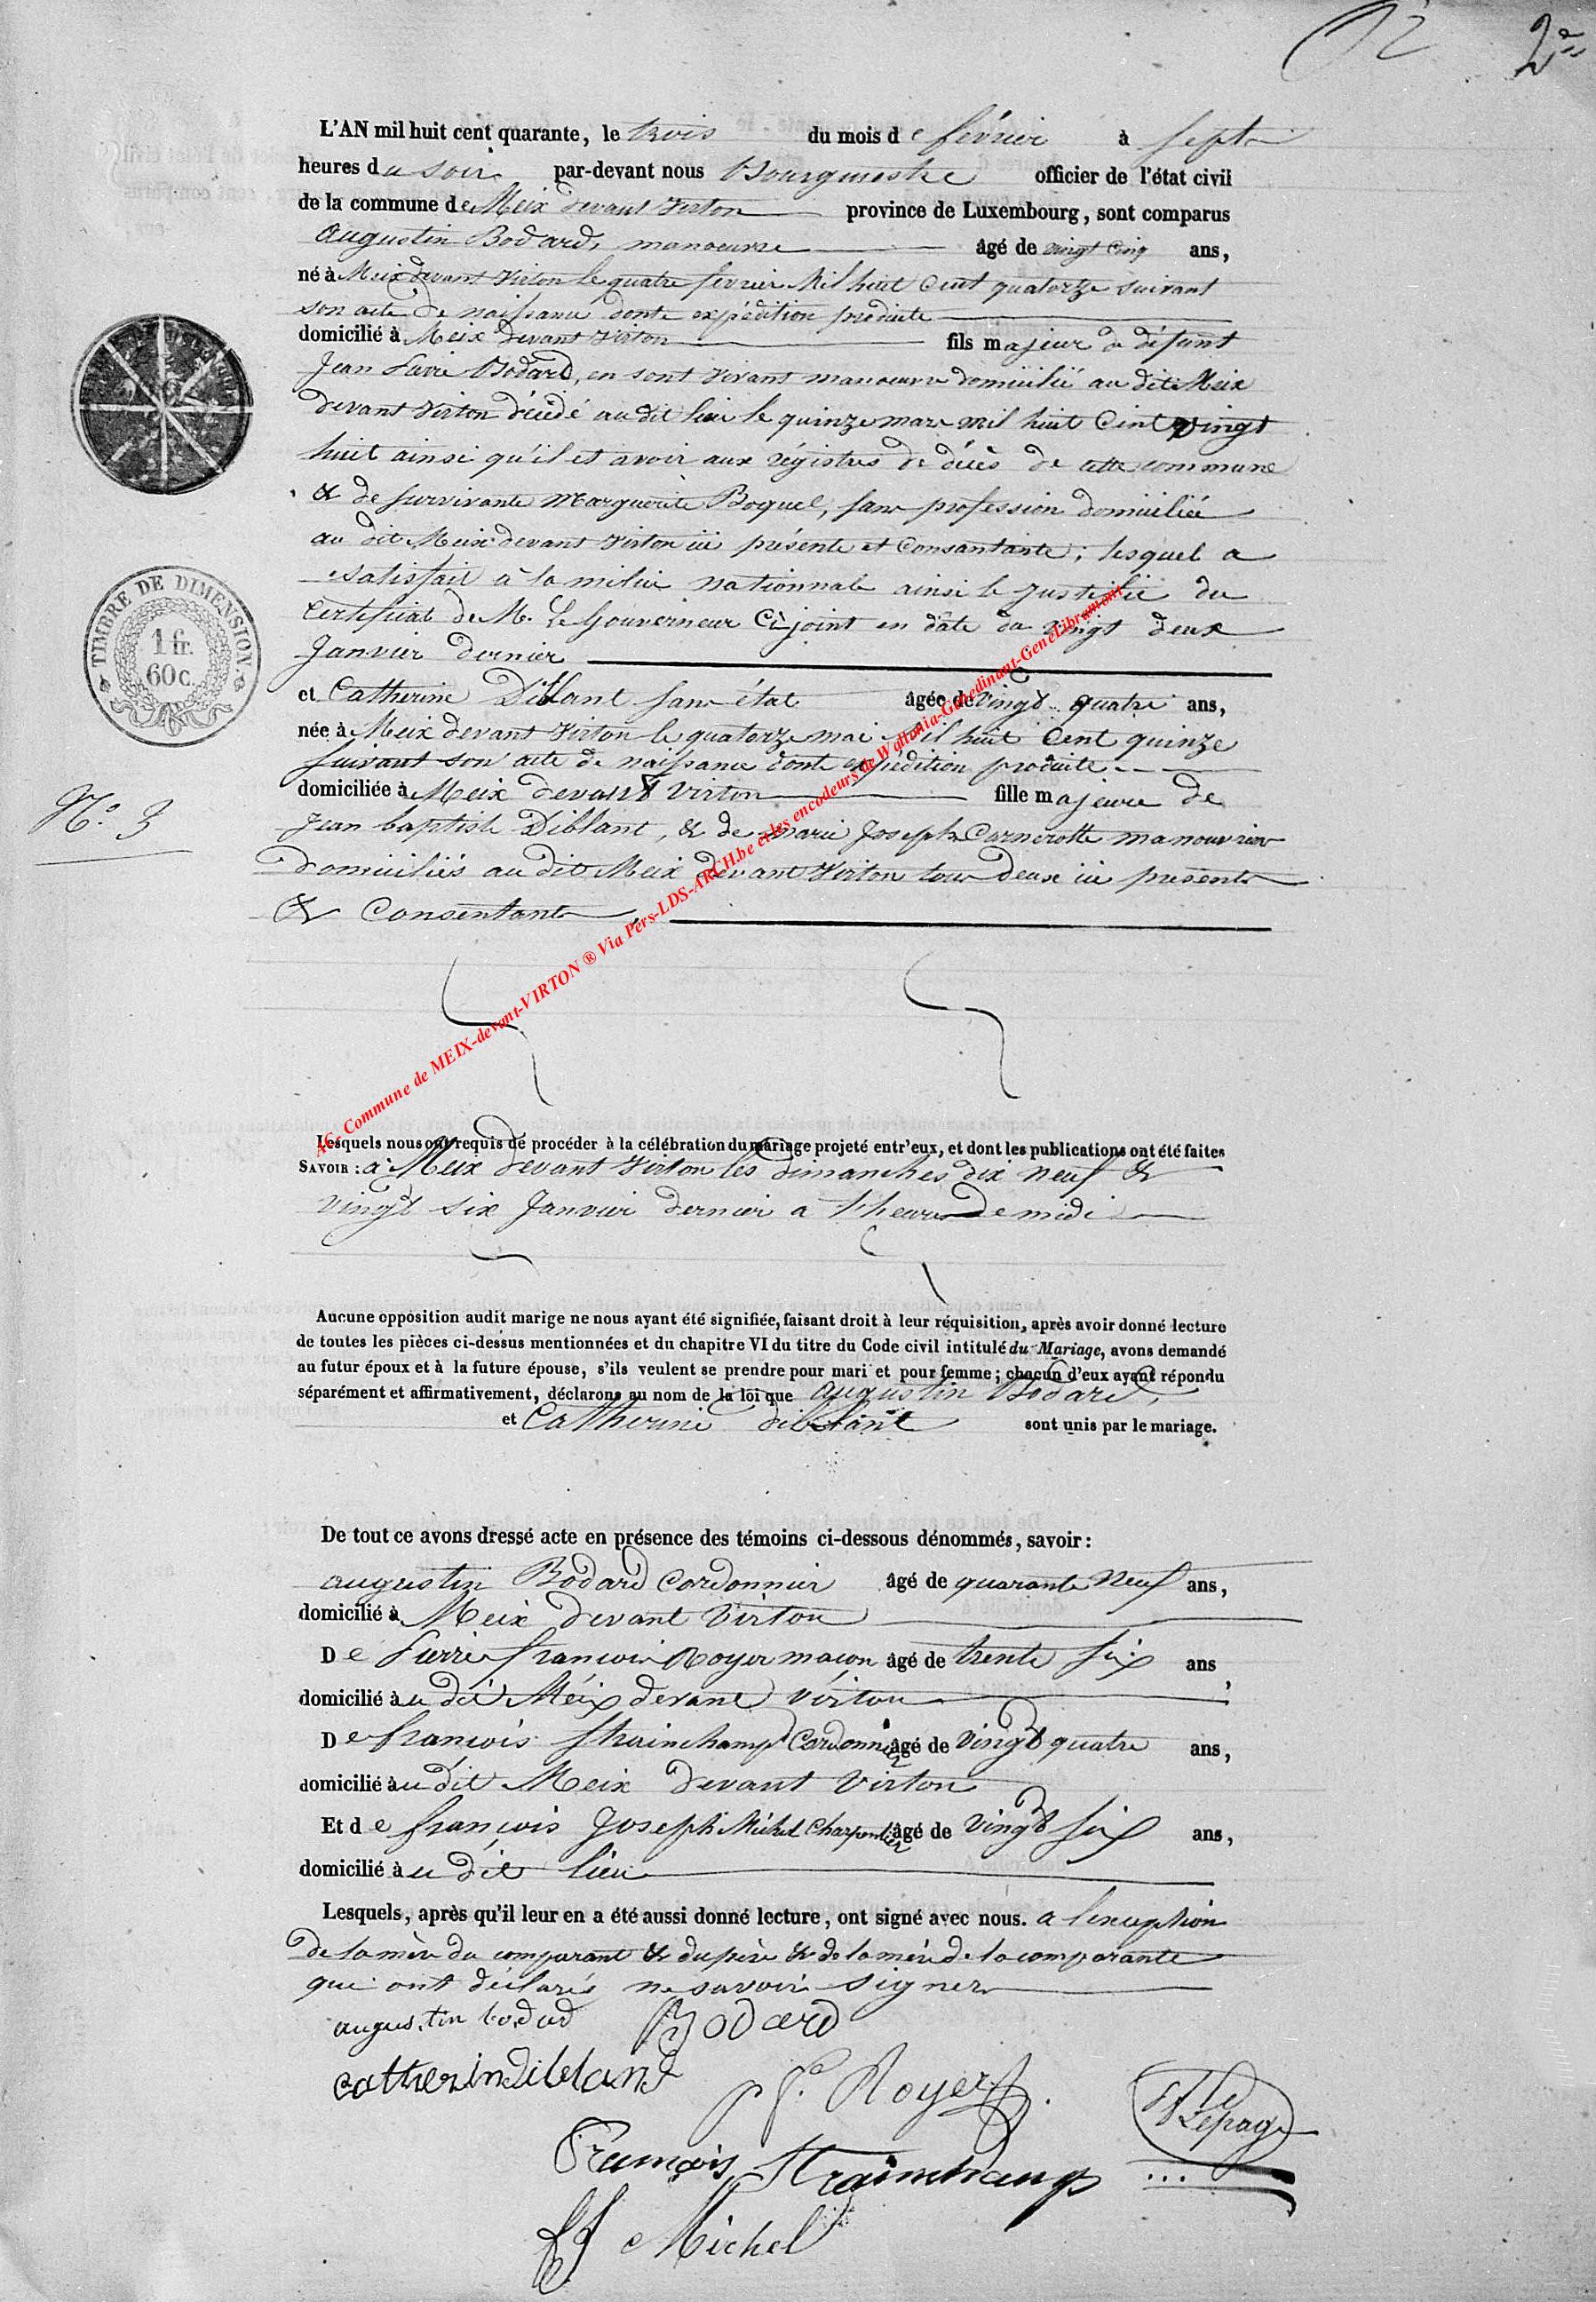 2e
L'AN mil huit cent quarante, le trois du mois de février à sept
heures du soir par-devant nous Bourgmestre officier de l'état civil
de la commune de Meix devant Virton province de Luxembourg, sont comparus
Augustin Bodard, manoeuvre âgé de vingt cinq ans,
né à Meix devant Virton le quatre fevrier Mil huit Cent quatorze suivant
son acte de naissance dont expédition produite
domicilié à Meix devant Virton fils majeur de défunt
Jean Bodard, en sont vivant manoeuvre domicilié au dit Meix
devant Virton décédé au dit lieu le quinze mars mil huit Cent vingt
huit ainsi qu'il et avoir aux régistres de décès de cette commune
& de survivante Marguerite Boquel, sans profession domiciliée
au dit Meix devant Virton ici présente et Consantante; lesquel a
satisfait à la milice nationnale ainsi le justifie du
Certificat de M. Le Gouverneur Ci joint en dâte du vingt deux
Janvier dernier
et Catherine Diblant sans état âgée de vingt quatre ans,
née à Meix devant Virton le quatorze mai Mil huit Cent quinze
suivant son acte de naissance dont expédition produite
domiciliée à Meix devant Virton fille majeure de
N.o 3
Jean baptiste Diblant, & de marie Joseph Carnerotte manouvrier
domiciliés au dit Meix devant Virton tous deux ici présents
& Consentants
Lesquels nous ont requis de procéder à la célébration du mariage projeté entr'eux, et dont les publications ont été faites
SAVOIR : à Meix devant Virton les dimanches dix neuf &
vingt six Janvier dernier a l'heure de midi
Aucune opposition audit marige ne nous ayant été signifiée, faisant droit à leur réquisition, après avoir donné lecture
de toutes les pièces ci-dessus mentionnées et du chapitre VI du titre du Code civil intitulé du Mariage, avons demandé
au futur époux et à la future épouse, s'ils veulent se prendre pour mari et pour femme ; chacun d'eux ayant répondu
séparément et affirmativement, déclarons au nom de la loi que augustin Bodard,
et Catherine diblant sont unis par le mariage.
De tout ce avons dressé acte en présence des témoins ci-dessous dénommés, savoir :
augustin Bodard Cordonnier âgé de quarante Neuf ans,
domicilié à Meix devant Virton
De Pierre françois Royer maçon âgé de trente six ans
domicilié au dit Méix devant Virton
De françois Strainchamp Cordonnier âgé de vingt quatre ans,
domicilié au dit Meix devant Virton
Et de françois Joseph Michel Charpentier âgé de vingt six ans,
domicilié au dit lieu
Lesquels, après qu'il leur en a été aussi donné lecture, ont signé avec nous. a l'exception
de la mère du comparant & du père & de la mère de la comparante
qui ont déclarés ne savoir signer
augustin bodard Bodard
catherin diblant
p f. Royer
Lepage
François Strainchamps
ff Michel
TIMBRE DE DIMENSION
1 fr.
60 c.
AC. Commune de MEIX-devant-VIRTON ® Via Pers-LDS-ARCH.be et les encodeurs de Wallonia-Genedinant-GeneLibramont